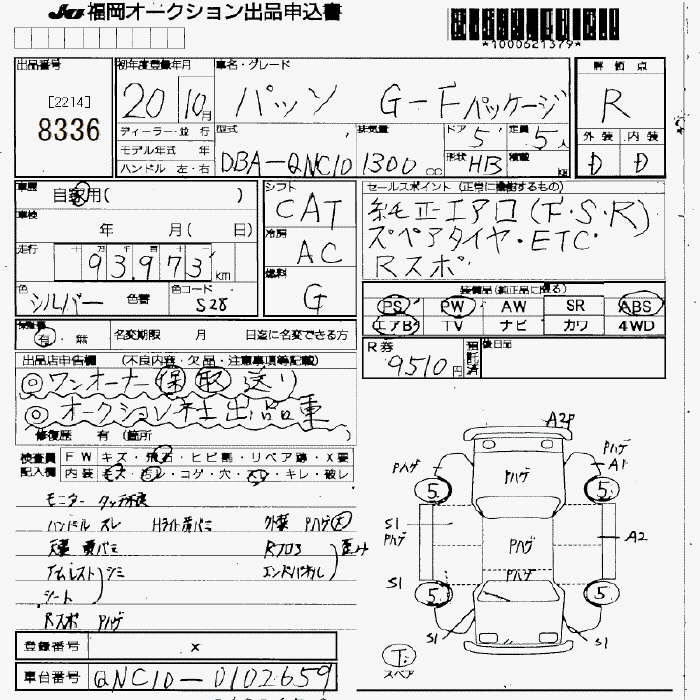 JU福岡オークション出品申込書
*1000621379*
出品番号
[2214]
8336
初年度登録年月
20 10月
車名・グレード
パッソ G-Fパッケージ
評価点
R
外装 内装
D D
ディーラー・並行
モデル年式 年
ハンドル 左・右
型式
DBA-QNC10
排気量
1300 cc
ドア
5
定員
5人
形状
HB
積載
kg
車歴
自家用( )
車検
年 月( 日)
走行
93,973 km
色
シルバー
色替
色コード
S28
シフト
CAT
冷房
AC
燃料
G
セールスポイント (正常に機能するもの)
純正エアロ(F・S・R)
スペアタイヤ・ETC・
Rスポ
装備品(純正品に限る)
PS PW AW SR ABS
エアB TV ナビ カワ 4WD
有・無
名変期限 月 日迄に名変できる方
R券
9510円
預託済
後日品
出品店申告欄 (不良内容・欠品・注意事項等記載)
◎ワンオーナー 保 取 送り
◎オークション社出品車
修復歴 有 (箇所 )
検査員
記入欄
FW キズ・飛石・ヒビ割・リペア跡・X要
内装・モス・汚レ・コゲ・穴・スレ・キレ・破レ
モニター タッチ不良
ハンドル スレ Hライト黄バミ 外装 Pハゲ大
天張 黄バミ Rフロア 歪み
アームレスト シミ エンドパネル
シート
Rスポ Pハゲ
A2P
Pハゲ
Pハゲ
A1
5
5
Pハゲ
S1
Pハゲ
A2
Pハゲ
Pハゲ
S1
5
5
S1
S1
下
スペア
登録番号 X
車台番号 QNC10-0102659